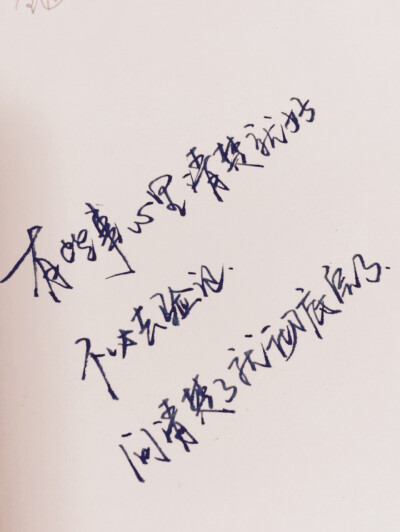 有些事心里清楚就好
不必去验证.
问清楚了就彻底了.